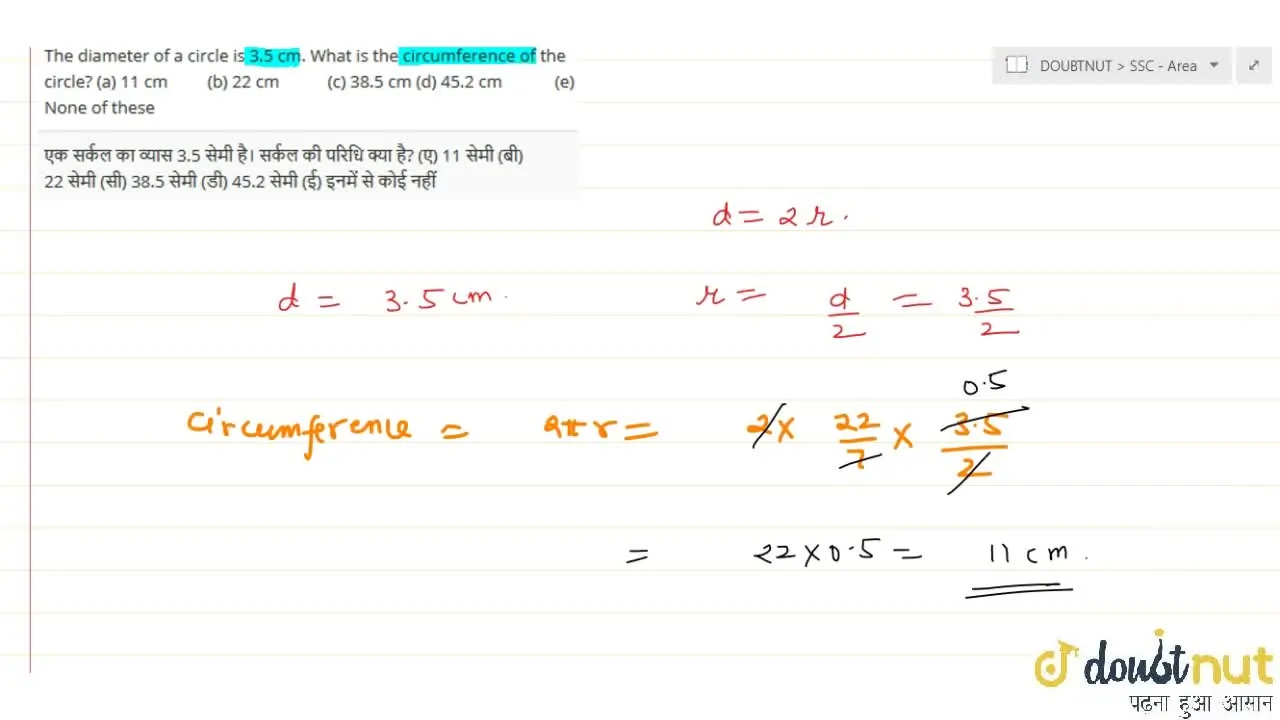 The diameter of a circle is 3.5 cm. What is the circumference of the
circle? (a) 11 cm (b) 22 cm (c) 38.5 cm (d) 45.2 cm (e)
None of these
DOUBTNUT > SSC - Area
एक सर्कल का व्यास 3.5 सेमी है। सर्कल की परिधि क्या है? (ए) 11 सेमी (बी)
22 सेमी (सी) 38.5 सेमी (डी) 45.2 सेमी (ई) इनमें से कोई नहीं
d = 2r.
d = 3.5 cm. r = d/2 = 3.5/2
0.5
Circumference = 2πr = 2 × 22/7 × 3.5/2
= 22 × 0.5 = 11 cm.
doubtnut
पढ़ना हुआ आसान